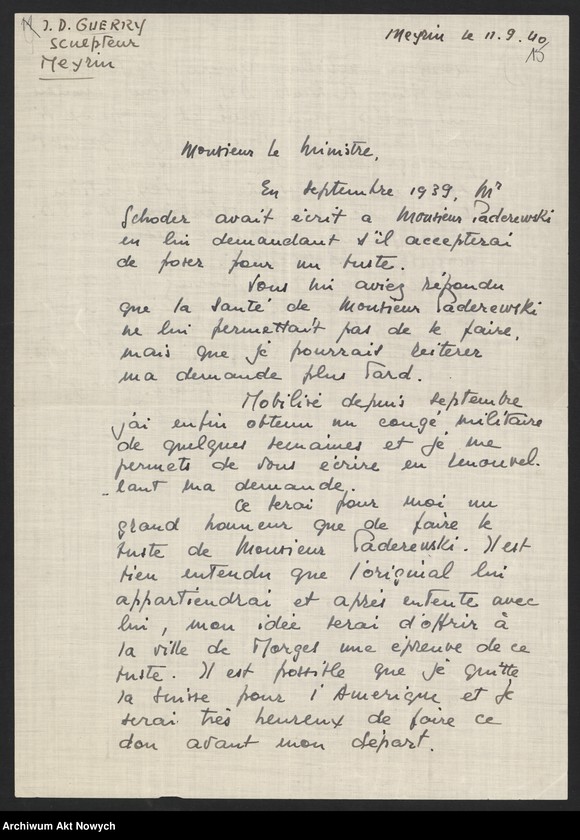 J. D. GUERRY
sculpteur
Meyrin
Meyrin le 11.9.40
15
Monsieur le ministre,
En septembre 1939, Mr
Schoder avait écrit a Monsieur Paderewski
en lui demandant s'il accepterai
de poser pour un buste.
Vous lui aviez répondu
que la santé de Monsieur Paderewski
ne lui permettait pas de le faire,
mais que je pourrais reiterer
ma demande plus tard.
Mobilisé depuis septembre
j'ai enfin obtenu un congé militaire
de quelques semaines et je me
permets de vous écrire en renouvel-
lant ma demande.
Ce serai pour moi un
grand honneur que de faire le
buste de Monsieur Paderewski. Il est
bien entendu que l'original lui
appartiendrai et après entente avec
lui, mon idée serai d'offrir à
la ville de Morges une épreuve de ce
buste. Il est possible que je quitte
la Suisse pour l'Amerique et je
serai très heureux de faire ce
don avant mon départ.
Archiwum Akt Nowych